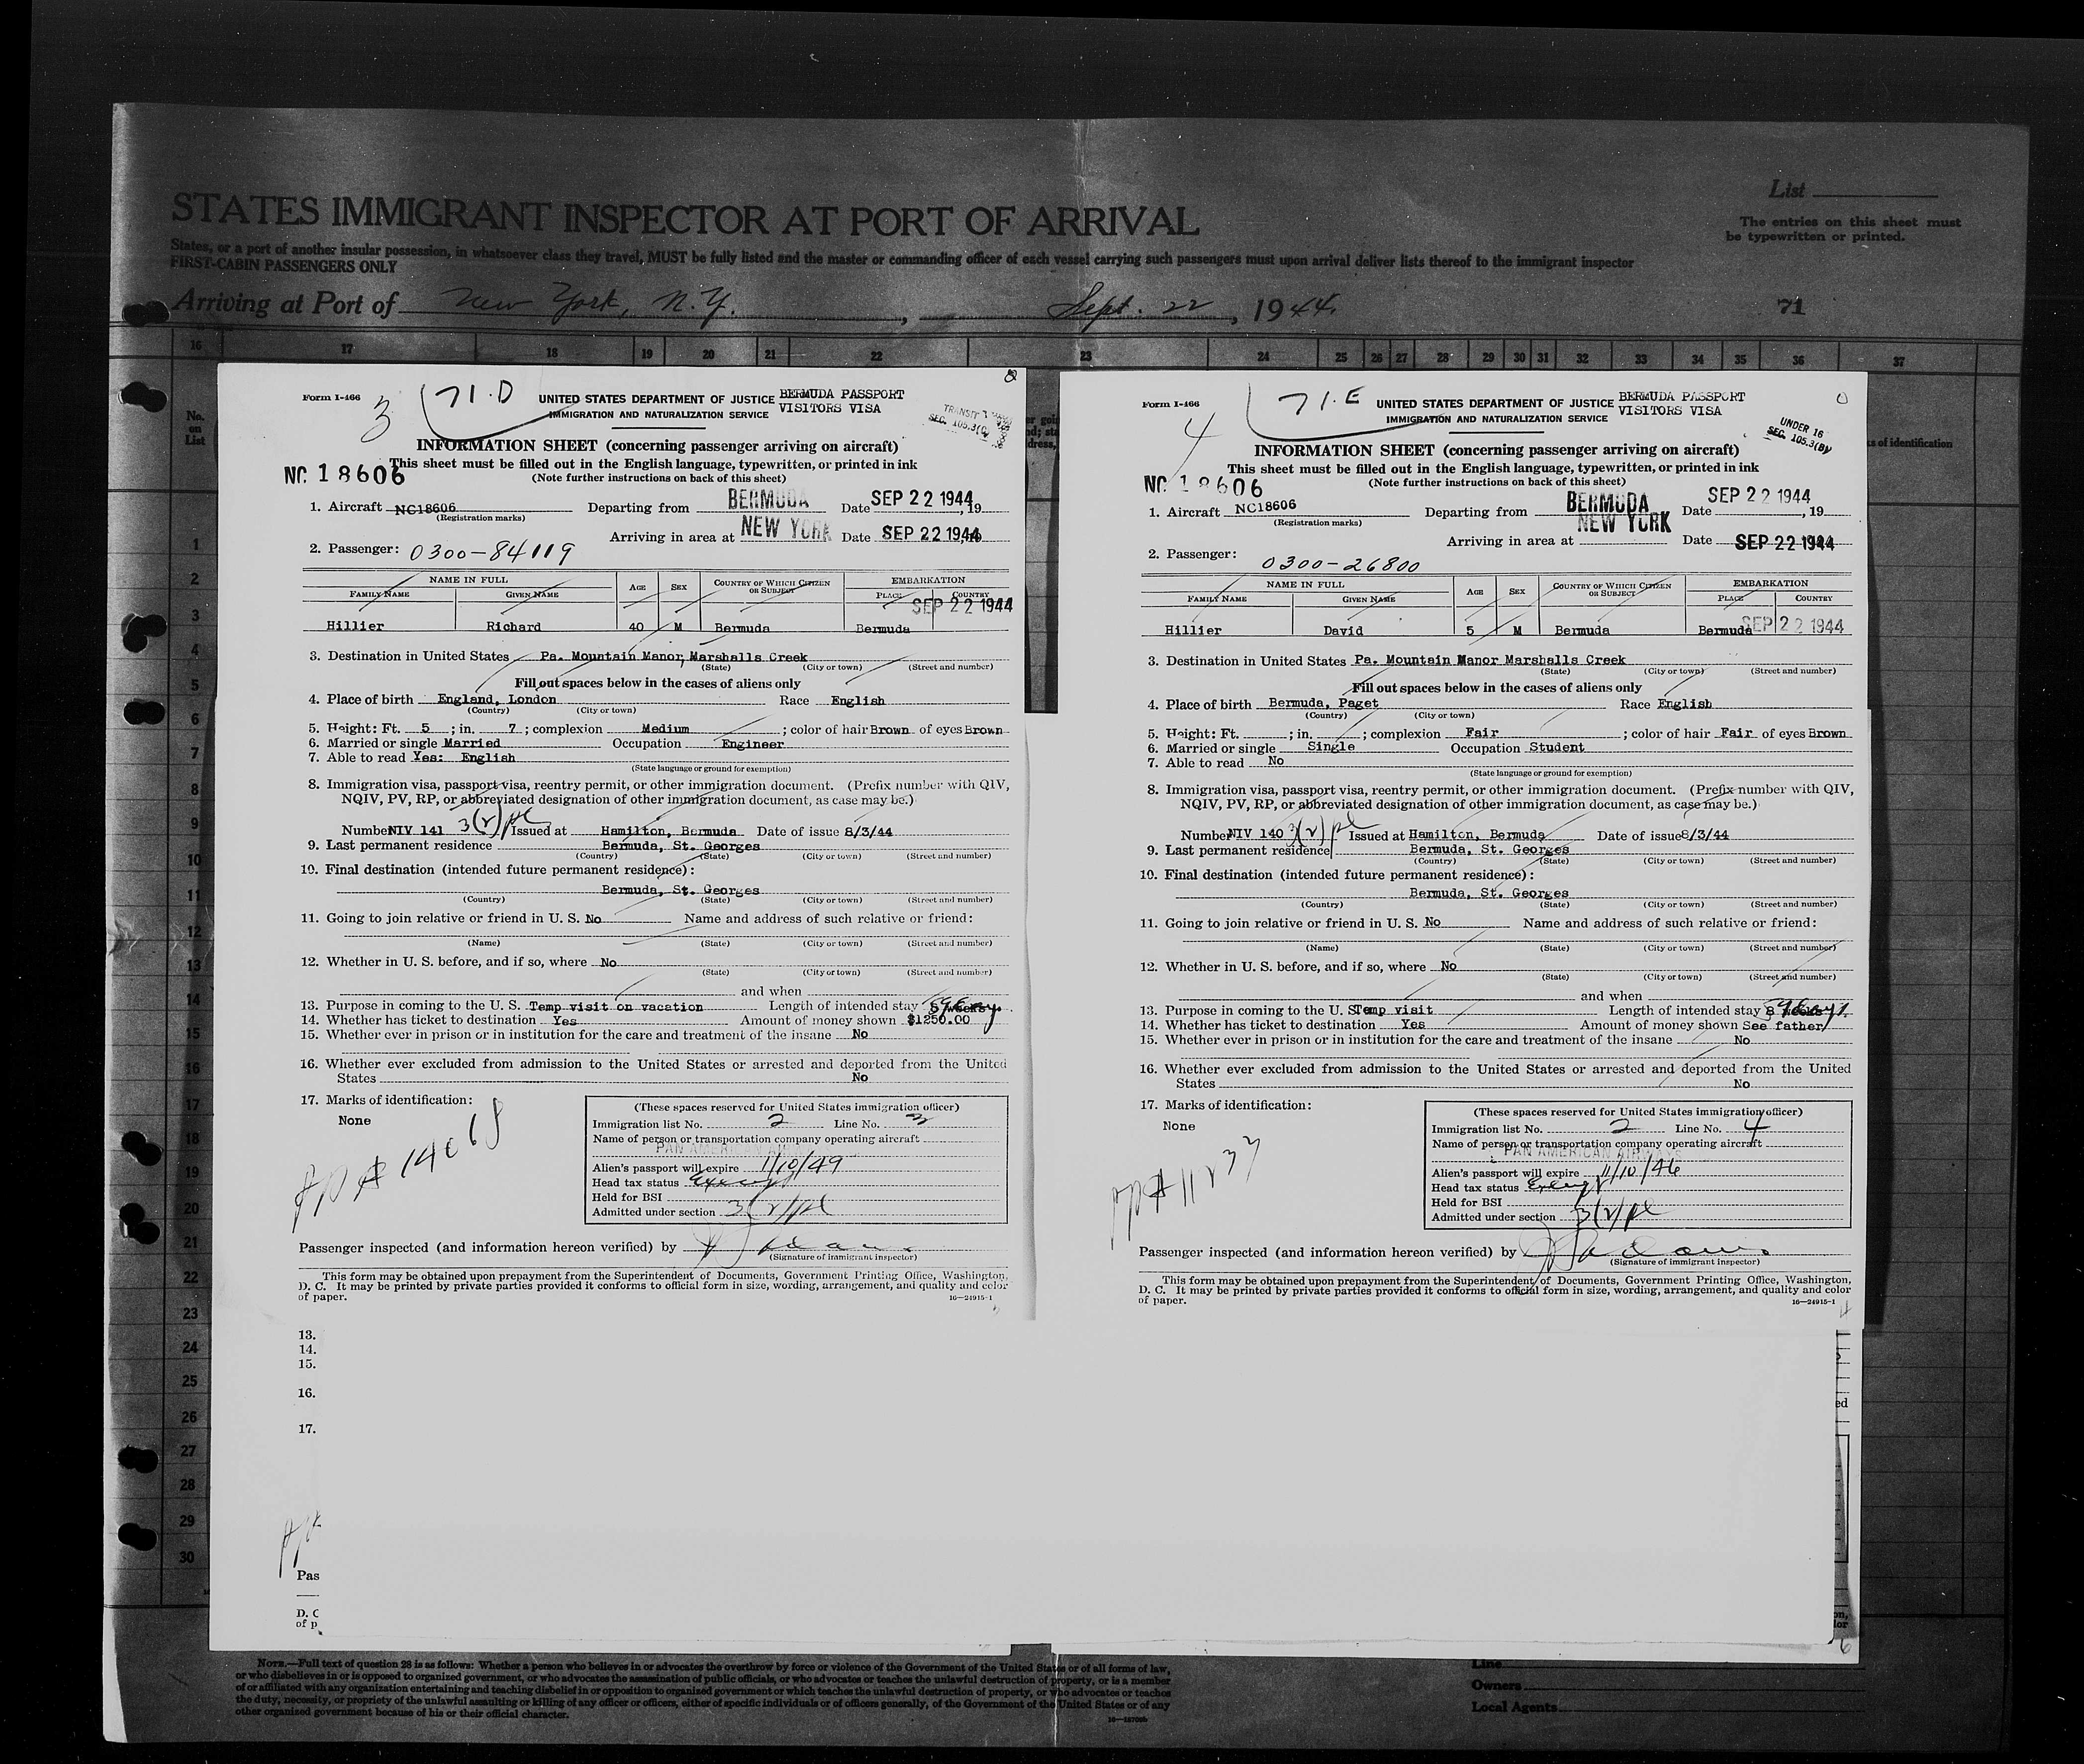 List
STATES IMMIGRANT INSPECTOR AT PORT OF ARRIVAL
The entries on this sheet must
be typewritten or printed.
States, or a port of another insular possession, in whatsoever class they travel, MUST be fully listed and the master or commanding officer of each vessel carrying such passengers must upon arrival deliver lists thereof to the immigrant inspector
FIRST-CABIN PASSENGERS ONLY
Arriving at Port of New York, N.Y., Sept. 22, 1944.
71
16 17 18 19 20 21 22 23 24 25 26 27 28 29 30 31 32 33 34 35 36 37
No.
on
List
1
2
3
4
5
6
7
8
9
10
11
12
13
14
15
16
17
18
19
20
21
22
23
24
25
26
27
28
29
30
Form I-466
3
71.D
UNITED STATES DEPARTMENT OF JUSTICE
BERMUDA PASSPORT
VISITORS VISA
IMMIGRATION AND NATURALIZATION SERVICE
TRANSIT
SEC. 105.3(C)
INFORMATION SHEET (concerning passenger arriving on aircraft)
This sheet must be filled out in the English language, typewritten, or printed in ink
NC 18606
(Note further instructions on back of this sheet)
1. Aircraft NC18606 Departing from BERMUDA Date SEP 22 1944, 19
(Registration marks)
Arriving in area at NEW YORK Date SEP 22 1944
2. Passenger: 0300-84119
NAME IN FULL AGE SEX COUNTRY OF WHICH CITIZEN OR SUBJECT EMBARKATION
FAMILY NAME GIVEN NAME PLACE COUNTRY
SEP 22 1944
Hillier Richard 40 M Bermuda Bermuda
3. Destination in United States Pa. Mountain Manor, Marshalls Creek
(State) (City or town) (Street and number)
Fill out spaces below in the cases of aliens only
4. Place of birth England, London Race English
(Country) (City or town)
5. Height: Ft. 5 ; in. 7 ; complexion Medium ; color of hair Brown of eyes Brown
6. Married or single Married Occupation Engineer
7. Able to read Yes: English
(State language or ground for exemption)
8. Immigration visa, passport visa, reentry permit, or other immigration document. (Prefix number with QIV,
NQIV, PV, RP, or abbreviated designation of other immigration document, as case may be.)
Number NIV 141 3(2) pl Issued at Hamilton, Bermuda Date of issue 8/3/44
9. Last permanent residence Bermuda, St. Georges
(Country) (State) (City or town) (Street and number)
10. Final destination (intended future permanent residence):
Bermuda, St. Georges
(Country) (State) (City or town) (Street and number)
11. Going to join relative or friend in U. S. No Name and address of such relative or friend:
(Name) (State) (City or town) (Street and number)
12. Whether in U. S. before, and if so, where No
(State) (City or town) (Street and number)
and when
13. Purpose in coming to the U. S. Temp visit on vacation Length of intended stay
14. Whether has ticket to destination Yes Amount of money shown $1250.00
15. Whether ever in prison or in institution for the care and treatment of the insane No
16. Whether ever excluded from admission to the United States or arrested and deported from the United
States No
17. Marks of identification:
None
(These spaces reserved for United States immigration officer)
Immigration list No. 2 Line No. 3
Name of person or transportation company operating aircraft
PAN AMERICAN
Alien's passport will expire 1/10/49
Head tax status
Held for BSI
Admitted under section 3(2) pl
Passenger inspected (and information hereon verified) by
(Signature of immigrant inspector)
This form may be obtained upon prepayment from the Superintendent of Documents, Government Printing Office, Washington,
D. C. It may be printed by private parties provided it conforms to official form in size, wording, arrangement, and quality and color
of paper.
16—24915-1
Form I-466
4
71.E
UNITED STATES DEPARTMENT OF JUSTICE
BERMUDA PASSPORT
VISITORS VISA
IMMIGRATION AND NATURALIZATION SERVICE
UNDER 16
SEC. 105.3(B)
INFORMATION SHEET (concerning passenger arriving on aircraft)
This sheet must be filled out in the English language, typewritten, or printed in ink
NC 18606
(Note further instructions on back of this sheet)
1. Aircraft NC18606 Departing from BERMUDA Date SEP 22 1944, 19
(Registration marks)
Arriving in area at NEW YORK Date SEP 22 1944
2. Passenger: 0300-26800
NAME IN FULL AGE SEX COUNTRY OF WHICH CITIZEN OR SUBJECT EMBARKATION
FAMILY NAME GIVEN NAME PLACE COUNTRY
SEP 22 1944
Hillier David 5 M Bermuda Bermuda
3. Destination in United States Pa. Mountain Manor Marshalls Creek
(State) (City or town) (Street and number)
Fill out spaces below in the cases of aliens only
4. Place of birth Bermuda, Paget Race English
(Country) (City or town)
5. Height: Ft. ; in. ; complexion Fair ; color of hair Fair of eyes Brown
6. Married or single Single Occupation Student
7. Able to read No
(State language or ground for exemption)
8. Immigration visa, passport visa, reentry permit, or other immigration document. (Prefix number with QIV,
NQIV, PV, RP, or abbreviated designation of other immigration document, as case may be.)
Number NIV 140 3(2) pl Issued at Hamilton, Bermuda Date of issue 8/3/44
9. Last permanent residence Bermuda, St. Georges
(Country) (State) (City or town) (Street and number)
10. Final destination (intended future permanent residence):
Bermuda, St. Georges
(Country) (State) (City or town) (Street and number)
11. Going to join relative or friend in U. S. No Name and address of such relative or friend:
(Name) (State) (City or town) (Street and number)
12. Whether in U. S. before, and if so, where No
(State) (City or town) (Street and number)
and when
13. Purpose in coming to the U. S. Temp visit Length of intended stay
14. Whether has ticket to destination Yes Amount of money shown See father
15. Whether ever in prison or in institution for the care and treatment of the insane No
16. Whether ever excluded from admission to the United States or arrested and deported from the United
States No
17. Marks of identification:
None
(These spaces reserved for United States immigration officer)
Immigration list No. 2 Line No. 4
Name of person or transportation company operating aircraft
PAN AMERICAN AIRWAYS
Alien's passport will expire 11/10/46
Head tax status
Held for BSI
Admitted under section 3(2) pl
Passenger inspected (and information hereon verified) by
(Signature of immigrant inspector)
This form may be obtained upon prepayment from the Superintendent of Documents, Government Printing Office, Washington,
D. C. It may be printed by private parties provided it conforms to official form in size, wording, arrangement, and quality and color
of paper.
16—24915-1
4
13.
14.
15.
16.
17.
Pas
D. C
of p
6
NOTE.—Full text of question 28 is as follows: Whether a person who believes in or advocates the overthrow by force or violence of the Government of the United States or of all forms of law,
or who disbelieves in or is opposed to organized government, or who advocates the assassination of public officials, or who advocates or teaches the unlawful destruction of property, or is a member
of or affiliated with any organization entertaining and teaching disbelief in or opposition to organized government or which teaches the unlawful destruction of property, or who advocates or teaches
the duty, necessity, or propriety of the unlawful assaulting or killing of any officer or officers, either of specific individuals or of officers generally, of the Government of the United States or of any
other organized government because of his or their official character.
Line
Owners
Local Agents